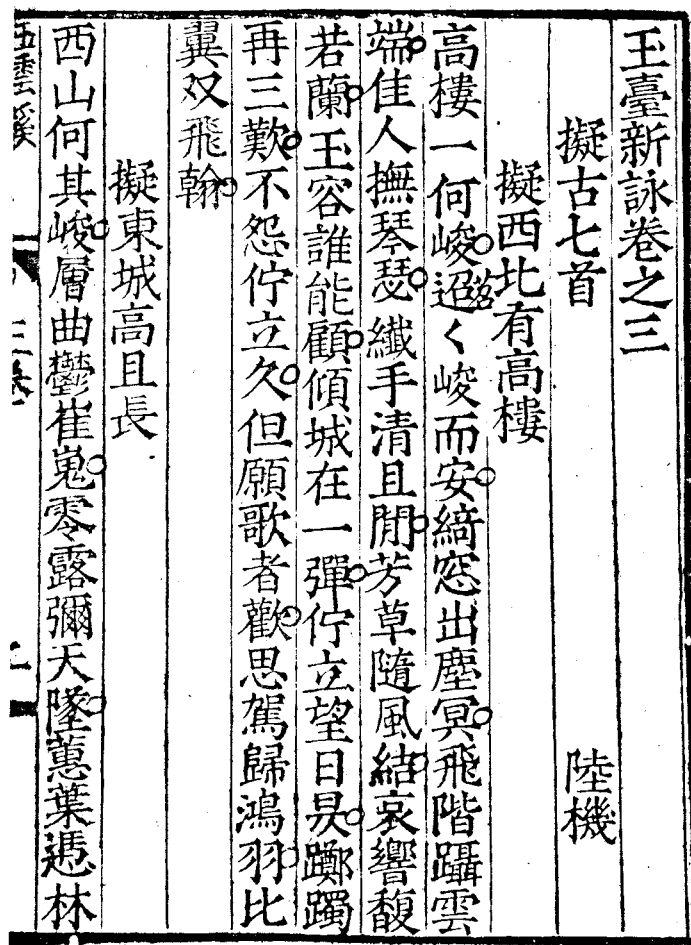 玉臺新詠卷之三
擬古七首 陸機
擬西北有高樓
高樓一何峻。迢苕く峻而安。綺窓出塵冥。飛階躡雲
端。佳人撫琴瑟。纖手清且閒。芳草隨風結。哀響馥
若蘭。玉容誰能顧。傾城在一彈。佇立望日昃。躑躅
再三歎。不怨佇立久。但願歌者歡。思駕歸鴻羽。比
翼双飛翰。
擬東城高且長
西山何其峻。層曲鬱崔嵬。零露彌天墜。蕙葉憑林
五雲溪 三卷